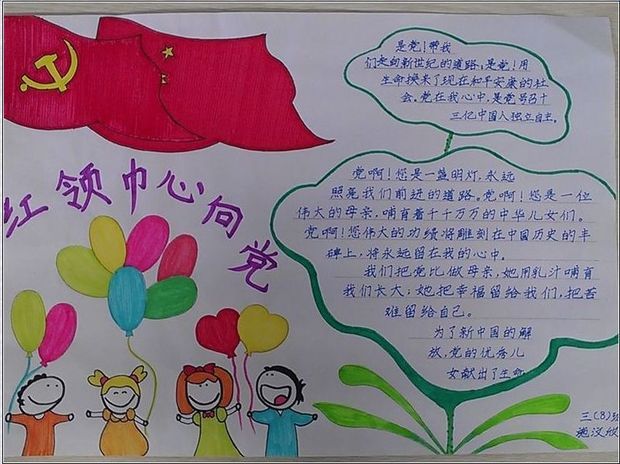 红领巾心向党
是党！带我
们走向新世纪的道路，是党！用
生命换来了现在和平安康的社
会。党在我心中，是党号召十
三亿中国人独立自主。
党啊！您是一盏明灯，永远
照亮我们前进的道路。党啊！您是一位
伟大的母亲，哺育着千千万万的中华儿女们。
党啊！您伟大的功绩将雕刻在中国历史的丰
碑上，将永远留在我的心中。
我们把党比做母亲，她用乳汁哺育
我们长大；她把幸福留给我们，把苦
难留给自己。
为了新中国的解
放，党的优秀儿
女献出了生命
三(8)班